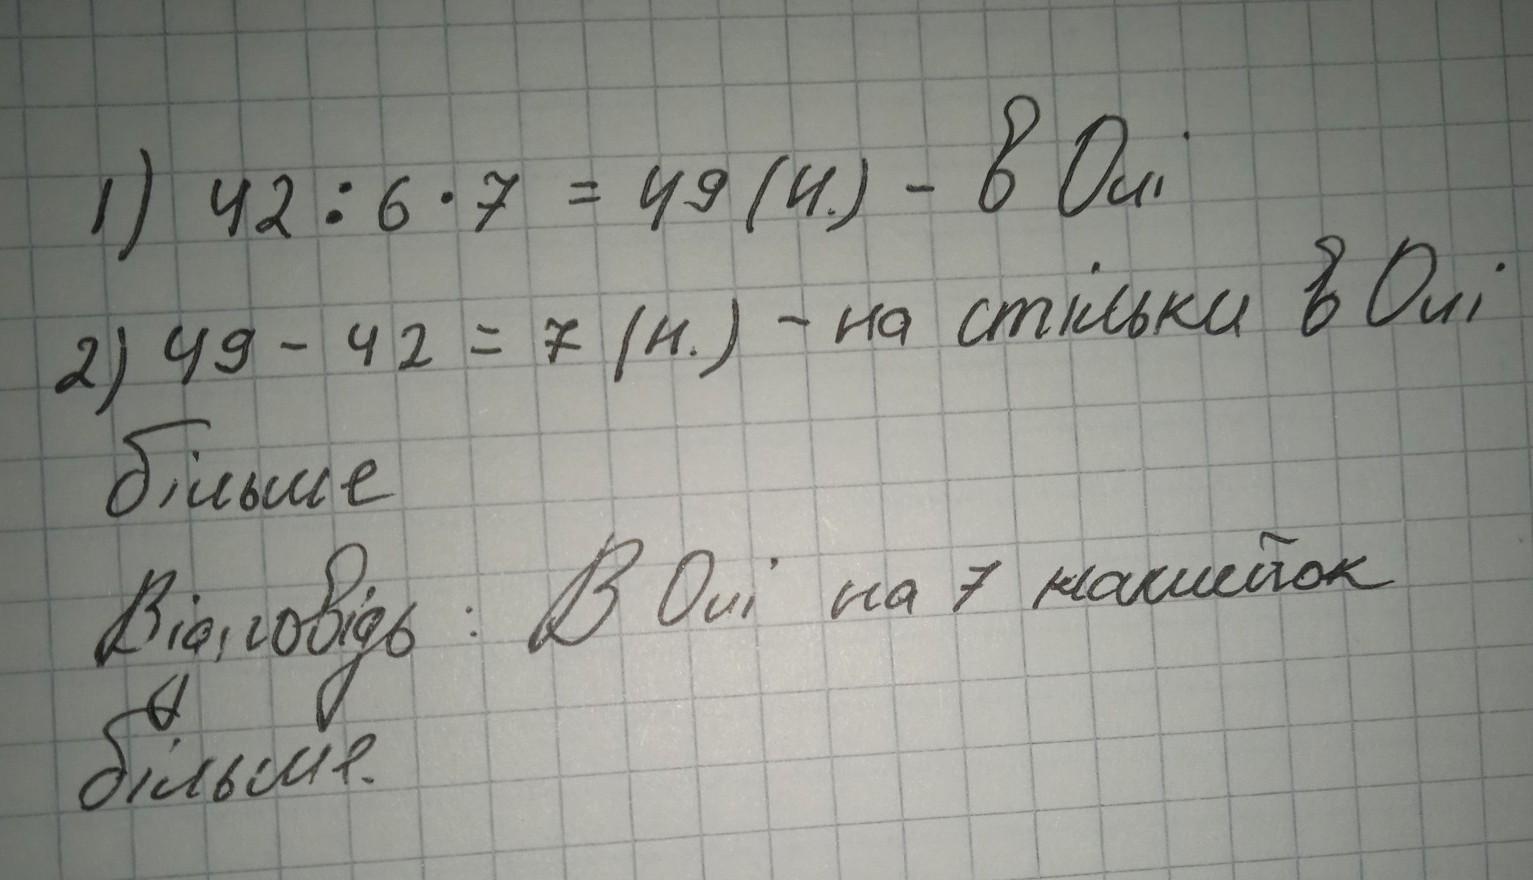 1) 42 : 6 · 7 = 49 (н.) - в Олі
2) 49 - 42 = 7 (н.) - на стільки в Олі
більше
Відповідь : В Олі на 7 наклейок
більше.